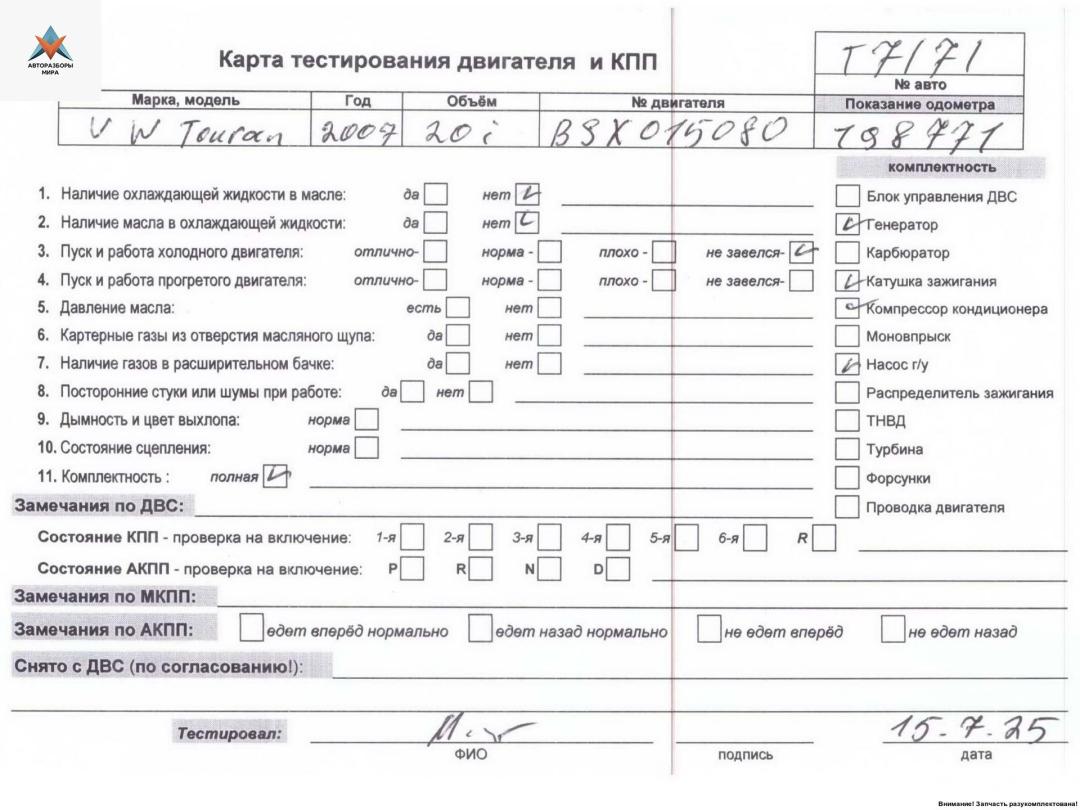 АВТОРАЗБОРЫ
МИРА
Карта тестирования двигателя и КПП
T7171
№ авто
Марка, модель Год Объём № двигателя Показание одометра
VW Touran 2007 20i BSX015080 198771
комплектность
1. Наличие охлаждающей жидкости в масле: да нет Блок управления ДВС
2. Наличие масла в охлаждающей жидкости: да нет Генератор
3. Пуск и работа холодного двигателя: отлично- норма - плохо - не завелся- Карбюратор
4. Пуск и работа прогретого двигателя: отлично- норма - плохо - не завелся- Катушка зажигания
5. Давление масла: есть нет Компрессор кондиционера
6. Картерные газы из отверстия масляного щупа: да нет Моновпрыск
7. Наличие газов в расширительном бачке: да нет Насос г/у
8. Посторонние стуки или шумы при работе: да нет Распределитель зажигания
9. Дымность и цвет выхлопа: норма ТНВД
10. Состояние сцепления: норма Турбина
11. Комплектность : полная Форсунки
Замечания по ДВС: Проводка двигателя
Состояние КПП - проверка на включение: 1-я 2-я 3-я 4-я 5-я 6-я R
Состояние АКПП - проверка на включение: P R N D
Замечания по МКПП:
Замечания по АКПП: едет вперёд нормально едет назад нормально не едет вперёд не едет назад
Снято с ДВС (по согласованию!):
Тестировал: 15.7.25
ФИО подпись дата
Внимание! Запчасть разукомплектована!